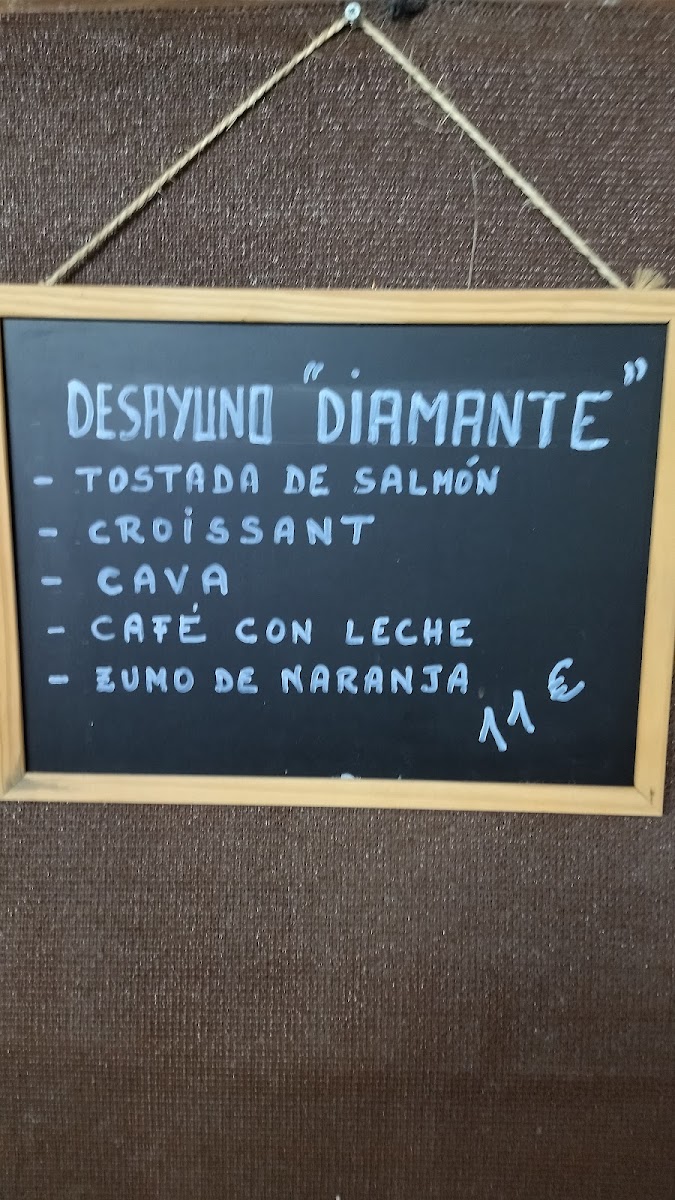 DESAYUNO "DIAMANTE"
- TOSTADA DE SALMÓN
- CROISSANT
- CAVA
- CAFÉ CON LECHE
- ZUMO DE NARANJA
11 €